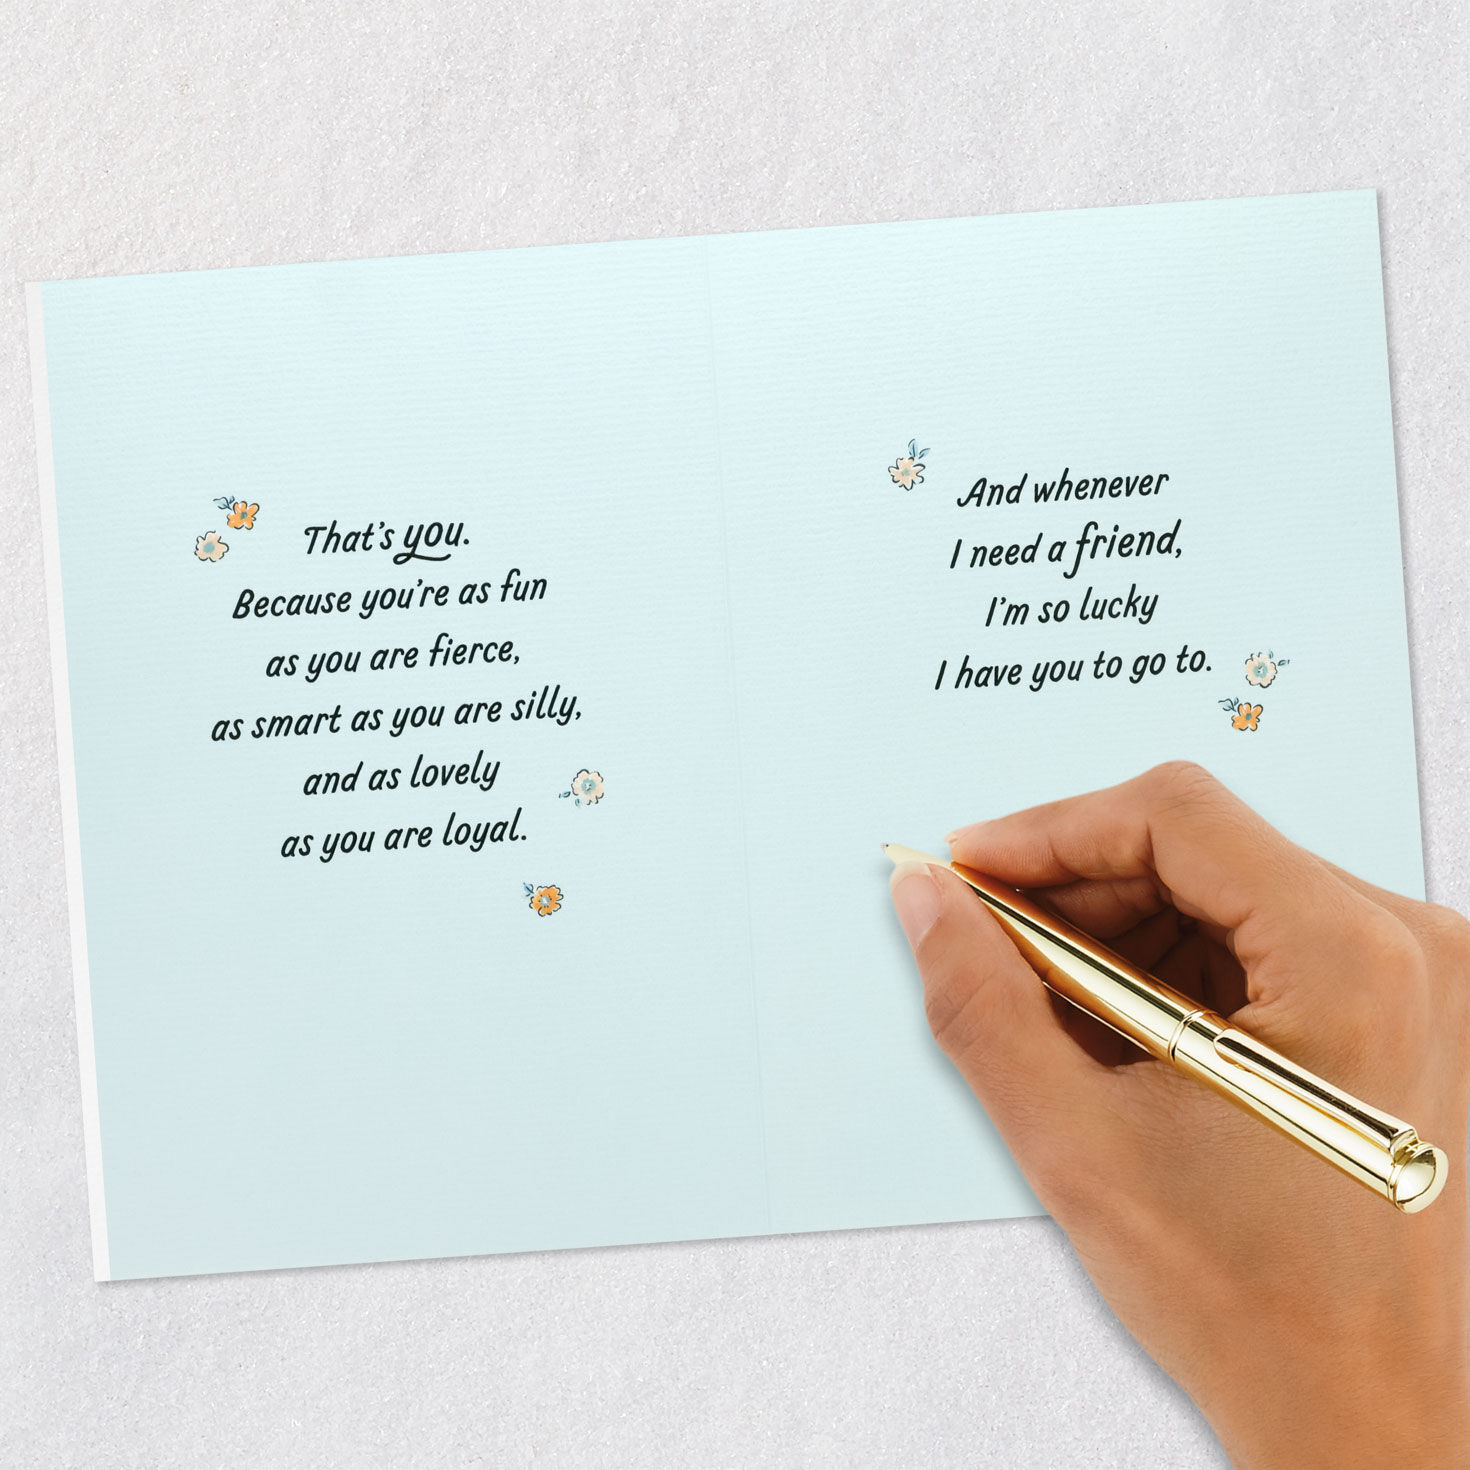 That's you.
Because you're as fun
as you are fierce,
as smart as you are silly,
and as lovely
as you are loyal.
And whenever
I need a friend,
I'm so lucky
I have you to go to.